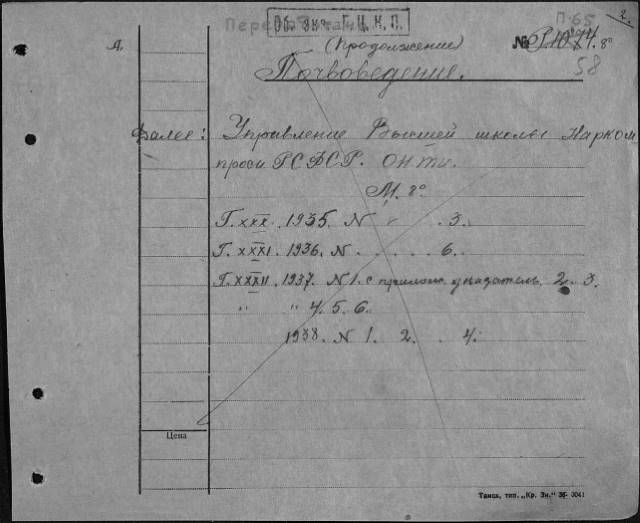 2.
Об. экз. Г.Ц.К.П.
П.65
А. (Продолжение) № 8°
Почвоведение. 58
Далее: Управление Высшей школы Нарком
проса РСФСР. ОНТИ.
М. 8°
Г. XXX. 1935. N . . 3.
Г. XXXI. 1936. N . . . . . 6.
Г. XXXII. 1937. N 1. с прилож. 2. 3.
" " 4. 5. 6.
1938. N 1. 2. 4.
Цена
Танса, тип. „Кр. Зн.“ 3041